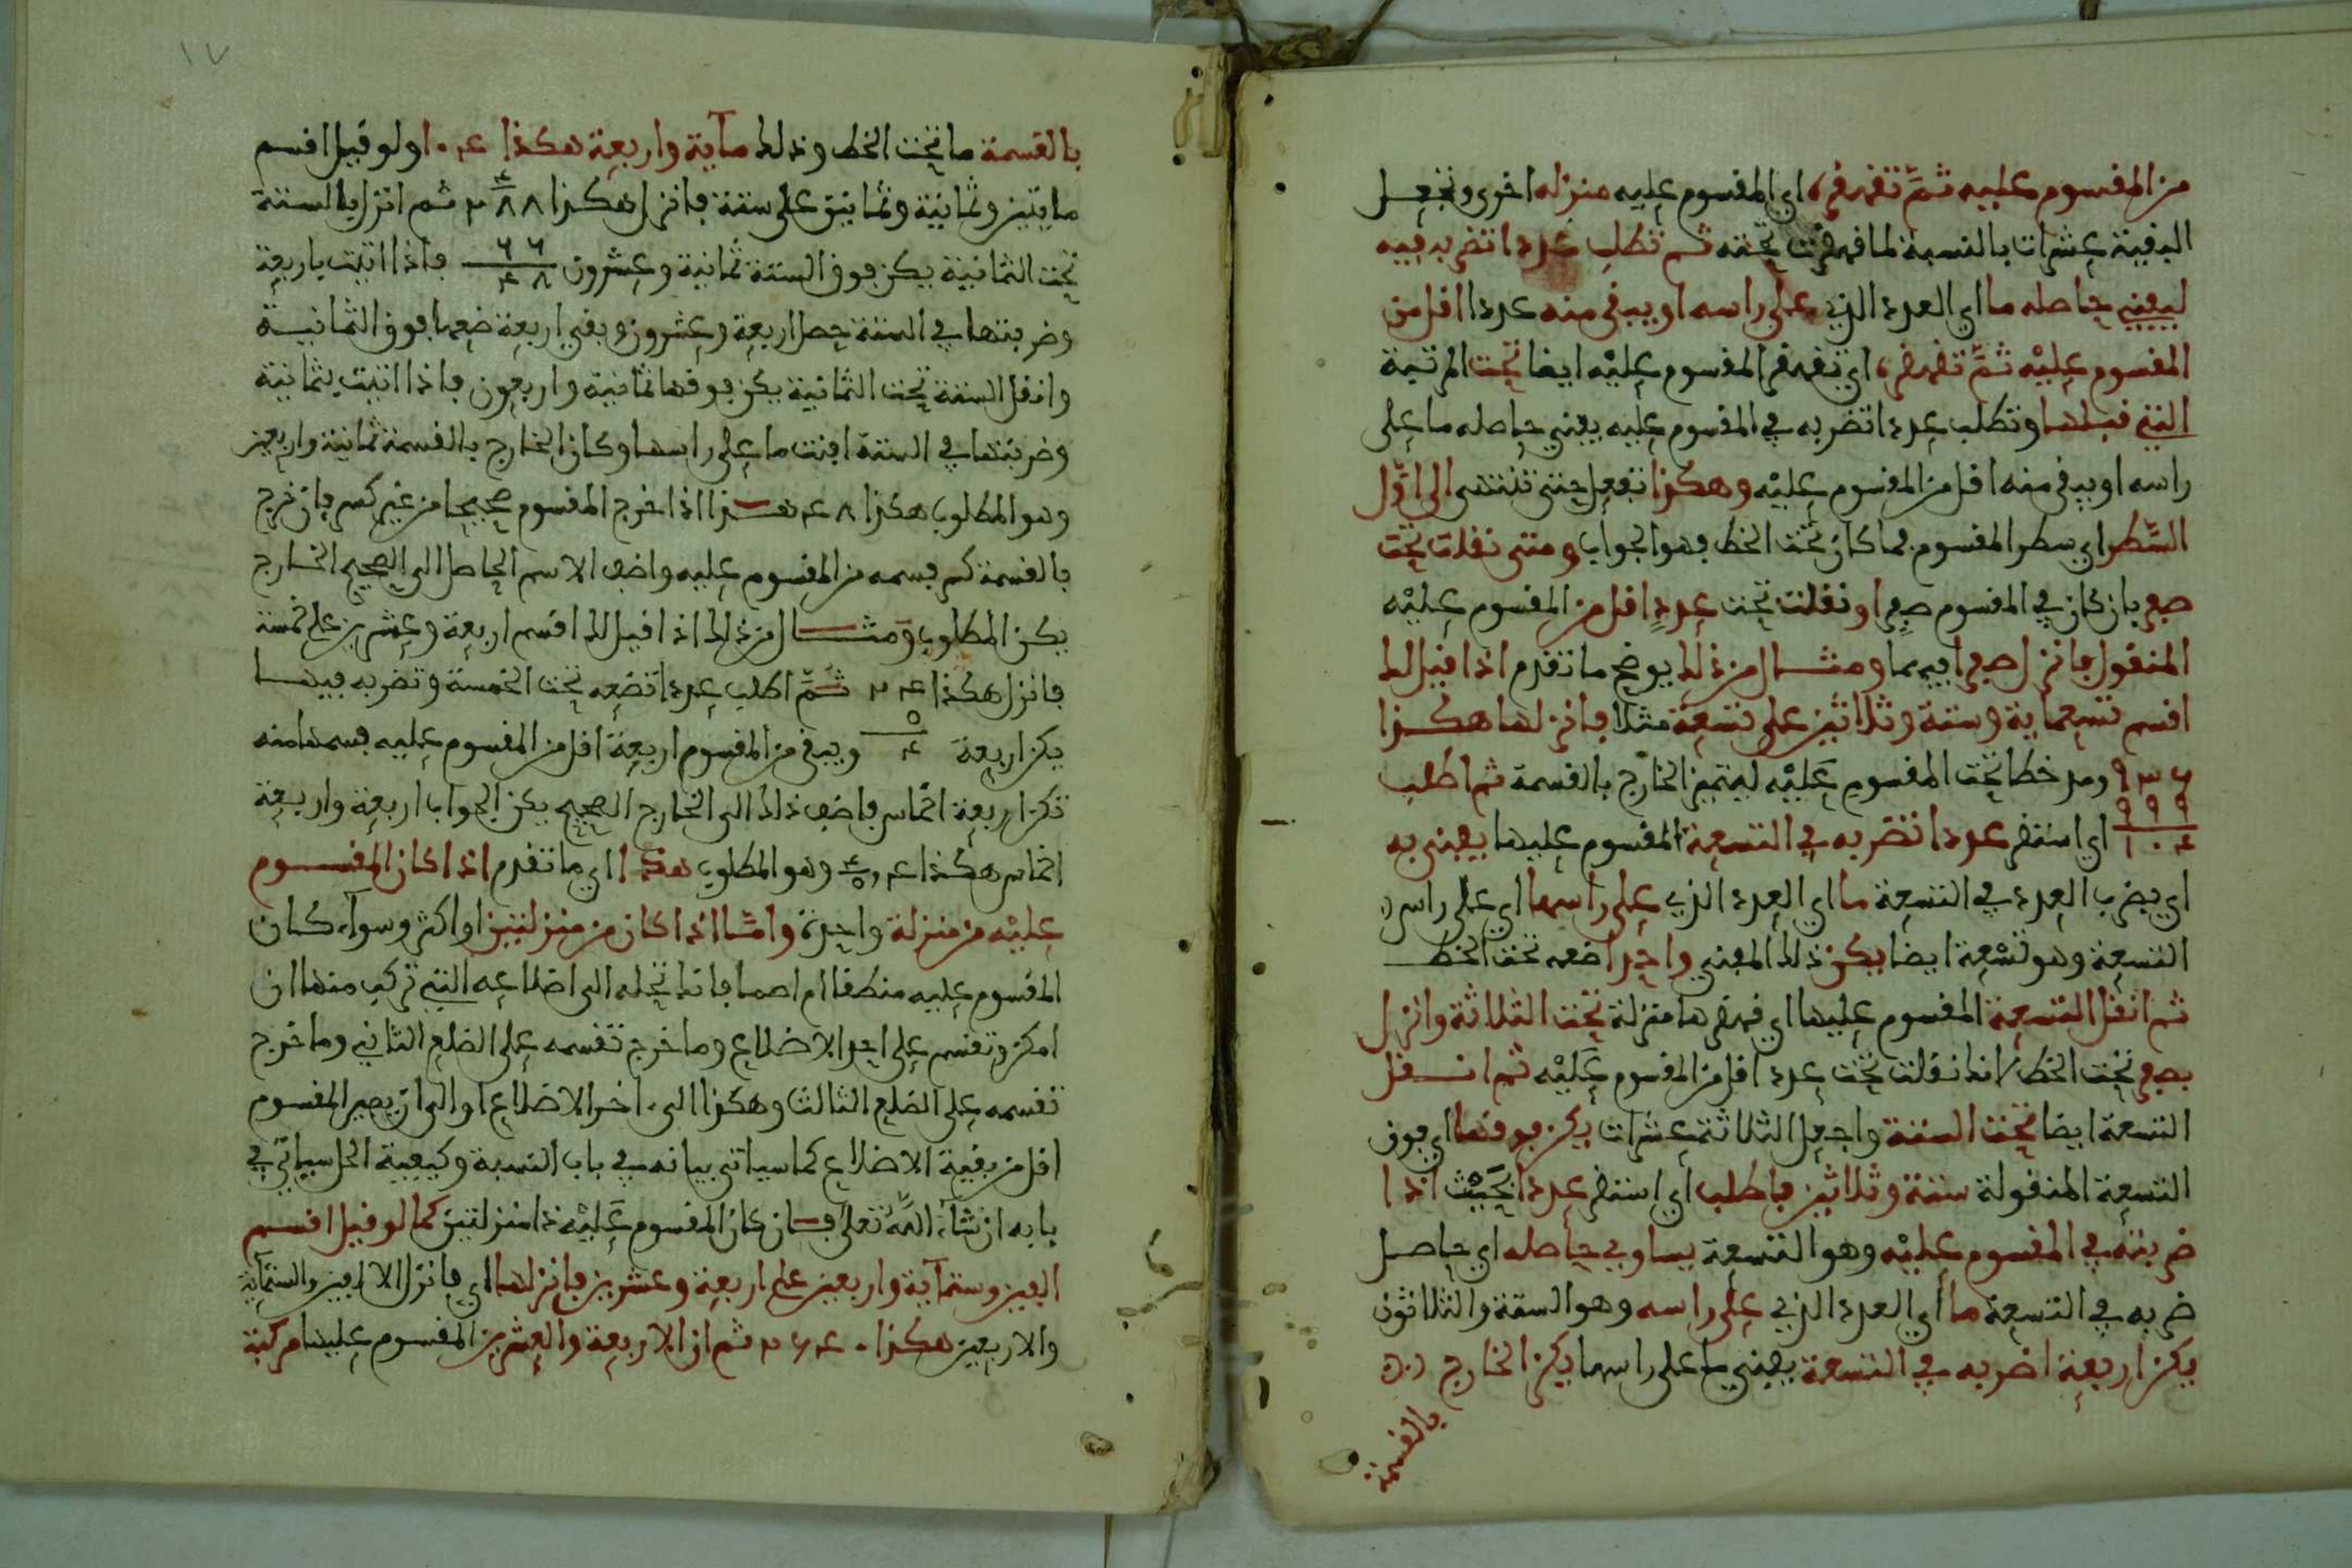 من المقسوم عليه ثمَّ تقهقره اي المقسوم عليه منزله اخرى وتجعل
البقية عشرات بالنسبة لما قهقرت تحته ثم تطلب عددا تضربه فيه
ليفني حاصله ما اي العدد الذي على راسه او يبقى منه عددا اقل من
المقسوم عليْه ثمَّ تقهقره اي تقهقر المقسوم عليْه ايضا تحت المرتبة
التي قبلها وتطلب عددا تضربه في المقسوم عليه يفني حاصله ما على
راسه او يبقى منه اقل من المقسوم عليْه وهكذا تفعل حتى تنتهى الى اوَّل
السَّطر اي سطر المقسوم فما كان تحت الخط فهو الجواب ومتى نقلت تحت
صفر بان كان في المقسوم صفرا او نقلت تحت عددٍ اقل من المقسوم عليْه
المنقول فانزل صفرا فيهما ومثال من ذلك يوضح ما تقدم اذا قيل لك
اقسم تسعماية وستة وثلاثين على تسعة مثلا فانزلها هكذا
٩٣٦ ومد خطا تحت المقسوم عليْه ليتميز الخارج بالقسمة ثم اطلب
٩٩٩ / ١٠٤ اي استقر عددا تضربه في التسعة المقسوم عليها يفنى به
اي بضرب العدد في التسعة ما اي العدد الذي على راسها اي على راس
التسعة وهو تسْعة ايضا يكن ذلك المفني واحدا ضعه تحت الخط
ثم انقل التسعة المقسوم عليها اي قهقرها منزلة تحت الثلاثة وانزل
بصفر تحت الخط لانك نقلت تحت عدد اقل من المقسوم عليْه ثم انقل
التسعة ايضا تحت الستة واجعل الثلاثة عشرات يكن فوقها اي فوق
التسعة المنقولة ستة وثلاثين فاطلب اي استقر عددا بحيْث اذا
ضربته في المقسوم عليْه وهو التسعة يساوي حاصله اي حاصل
ضربه في التسعة ما أي العدد الذي على راسه وهو الستة والثلاثون
يكن اربعة اضربه في التسعة يفني ما على راسها يكن الخارج
بالقسمة
١٧
بالقسمة ما تحت الخط وذلك مآية واربعة هكذا ١٠٤ ولو قيل اقسم
مايتين وثمانية وثمانين على ستة فانزل هكذا ٢٨٨ ثم انزل بالستة
تحت الثمانية يكن فوق الستة ثمانية وعشرون ٦٦ / ٤٨ فاذا اتيت باربعة
وضربتها في الستة حصل اربعة وعشرون وبقي اربعة ضعها فوق الثمانية
وانقل الستة تحت الثمانية يكن فوقها ثمانية واربعون فاذا اتيت بثمانية
وضربتها في الستة افنت ما على راسها وكان الخارج بالقسمة ثمانية واربعين
وهو المطلوب هكذا ٤٨ هذا اذا خرج المقسوم صحيحا من غير كسر فان خرج
بالقسمة كسر فسمه من المقسوم عليه واضف الاسم الحاصل الى الصحيح الخارج
يكن المطلوب ومثال من ذلك اذا قيل لك اقسم اربعة وعشرين على خمسة
فانزل هكذا ٢٤ ثمَّ اطلب عددا تضعه تحت الخمسة وتضربه فيها
يكن اربعة ٥ / ٤ ويبقى من المقسوم اربعة اقل من المقسوم عليه فسمها منه
تكن اربعة اخماس فاضف ذلك الى الخارج الصحيح يكن الجواب اربعة واربعة
اخماس هكذا ٤ و ٤/٥ وهو المطلوب هذا اي ما تقدم اذا كان المقسوم
عليْه من منزلة واحدة وامَّا اذا كان من منزلتين او اكثر وسوآء كان
المقسوم عليه منطقا ام اصما فانك تحله الى اضلاعه التي تركب منها ان
امكن وتقسم على احد الاضلاع وما خرج تقسمه على الضلع الثاني وما خرج
تقسمه على الضلع الثالث وهكذا الى اخر الاضلاع او الى ان يصير المقسوم
اقل من بقية الاضلاع كما سياتي بيانه في باب التسمية وكيفية الحل سياتي في
بابه ان شآء اللَّه تعلى فان كان المقسوم عليْه ذا منزلتين كما لو قيل اقسم
الفين وستمآية واربعين على اربعة وعشرين فانزلها اي فانزل الالفين والستمآية
والاربعين هكذا ٢٦٤٠ ثم ان الاربعة والعشرين المقسوم عليها مركبة